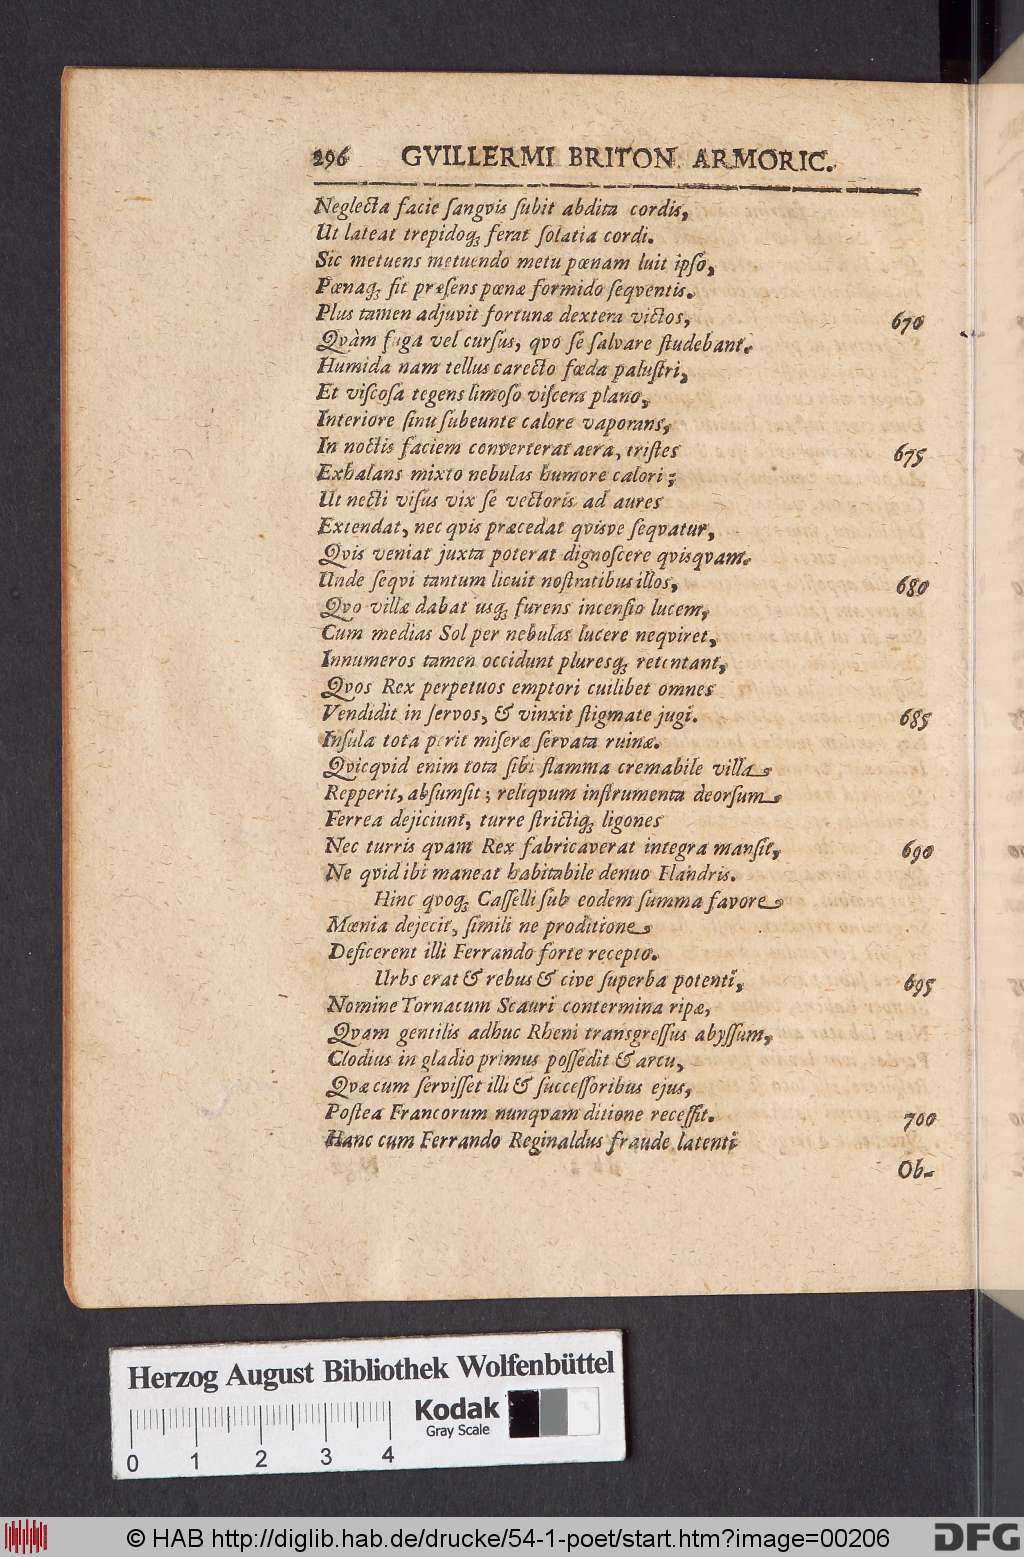 296 GVILLERMI BRITON. ARMORIC.
Neglecta facie ſangvis ſubit abdita cordis,
Ut lateat trepidoq; ferat ſolatia cordi.
Sic metuens metuendo metu pœnam luit ipſo,
Pœnaq; fit præſens pœnæ formido ſeqventis.
Plus tamen adjuvit fortunæ dextera victos, 670
Qvàm fuga vel curſus, qvo ſe ſalvare ſtudebant.
Humida nam tellus carecto fœda paluſtri,
Et viſcoſa tegens limoſo viſcera plano,
Interiore ſinu ſubeunte calore vaporans,
In noctis faciem converterat aera, triſtes 675
Exhalans mixto nebulas humore calori;
Ut necti viſus vix ſe vectoris ad aures
Extendat, nec qvis præcedat qvisve ſeqvatur,
Qvis veniat juxta poterat dignoſcere qvisqvam.
Unde ſeqvi tantum licuit noſtratibus illos, 680
Qvo villæ dabat usq; furens incenſio lucem,
Cum medias Sol per nebulas lucere neqviret,
Innumeros tamen occidunt plures​q; retentant,
Qvos Rex perpetuos emptori cuilibet omnes
Vendidit in ſervos, & vinxit ſtigmate jugi. 685
Inſula tota perit miſeræ ſervata ruinæ.
Qvicqvid enim tota ſibi flamma cremabile villa
Repperit, abſumſit; reliqvum inſtrumenta deorſum
Ferrea dejiciunt, turre ſtrictiq; ligones
Nec turris qvam Rex fabricaverat integra manſit, 690
Ne qvid ibi maneat habitabile denuo Flandris.
Hinc qvoq; Caſſelli ſub eodem ſumma favore
Mœnia dejecit, ſimili ne proditione
Deficerent illi Ferrando forte recepto.
Urbs erat & rebus & cive ſuperba potenti, 695
Nomine Tornacum Scauri contermina ripæ,
Qvam gentilis adhuc Rheni transgreſſus abyſſum,
Clodius in gladio primus poſſedit & arcu,
Qvæ cum ſerviſſet illi & ſucceſſoribus ejus,
Poſtea Francorum nunqvam ditione receſſit. 700
Hanc cum Ferrando Reginaldus fraude latenti
Ob-
Herzog August Bibliothek Wolfenbüttel
Kodak
Gray Scale
0 1 2 3 4
© HAB http://diglib.hab.de/drucke/54-1-poet/start.htm?image=00206
DFG